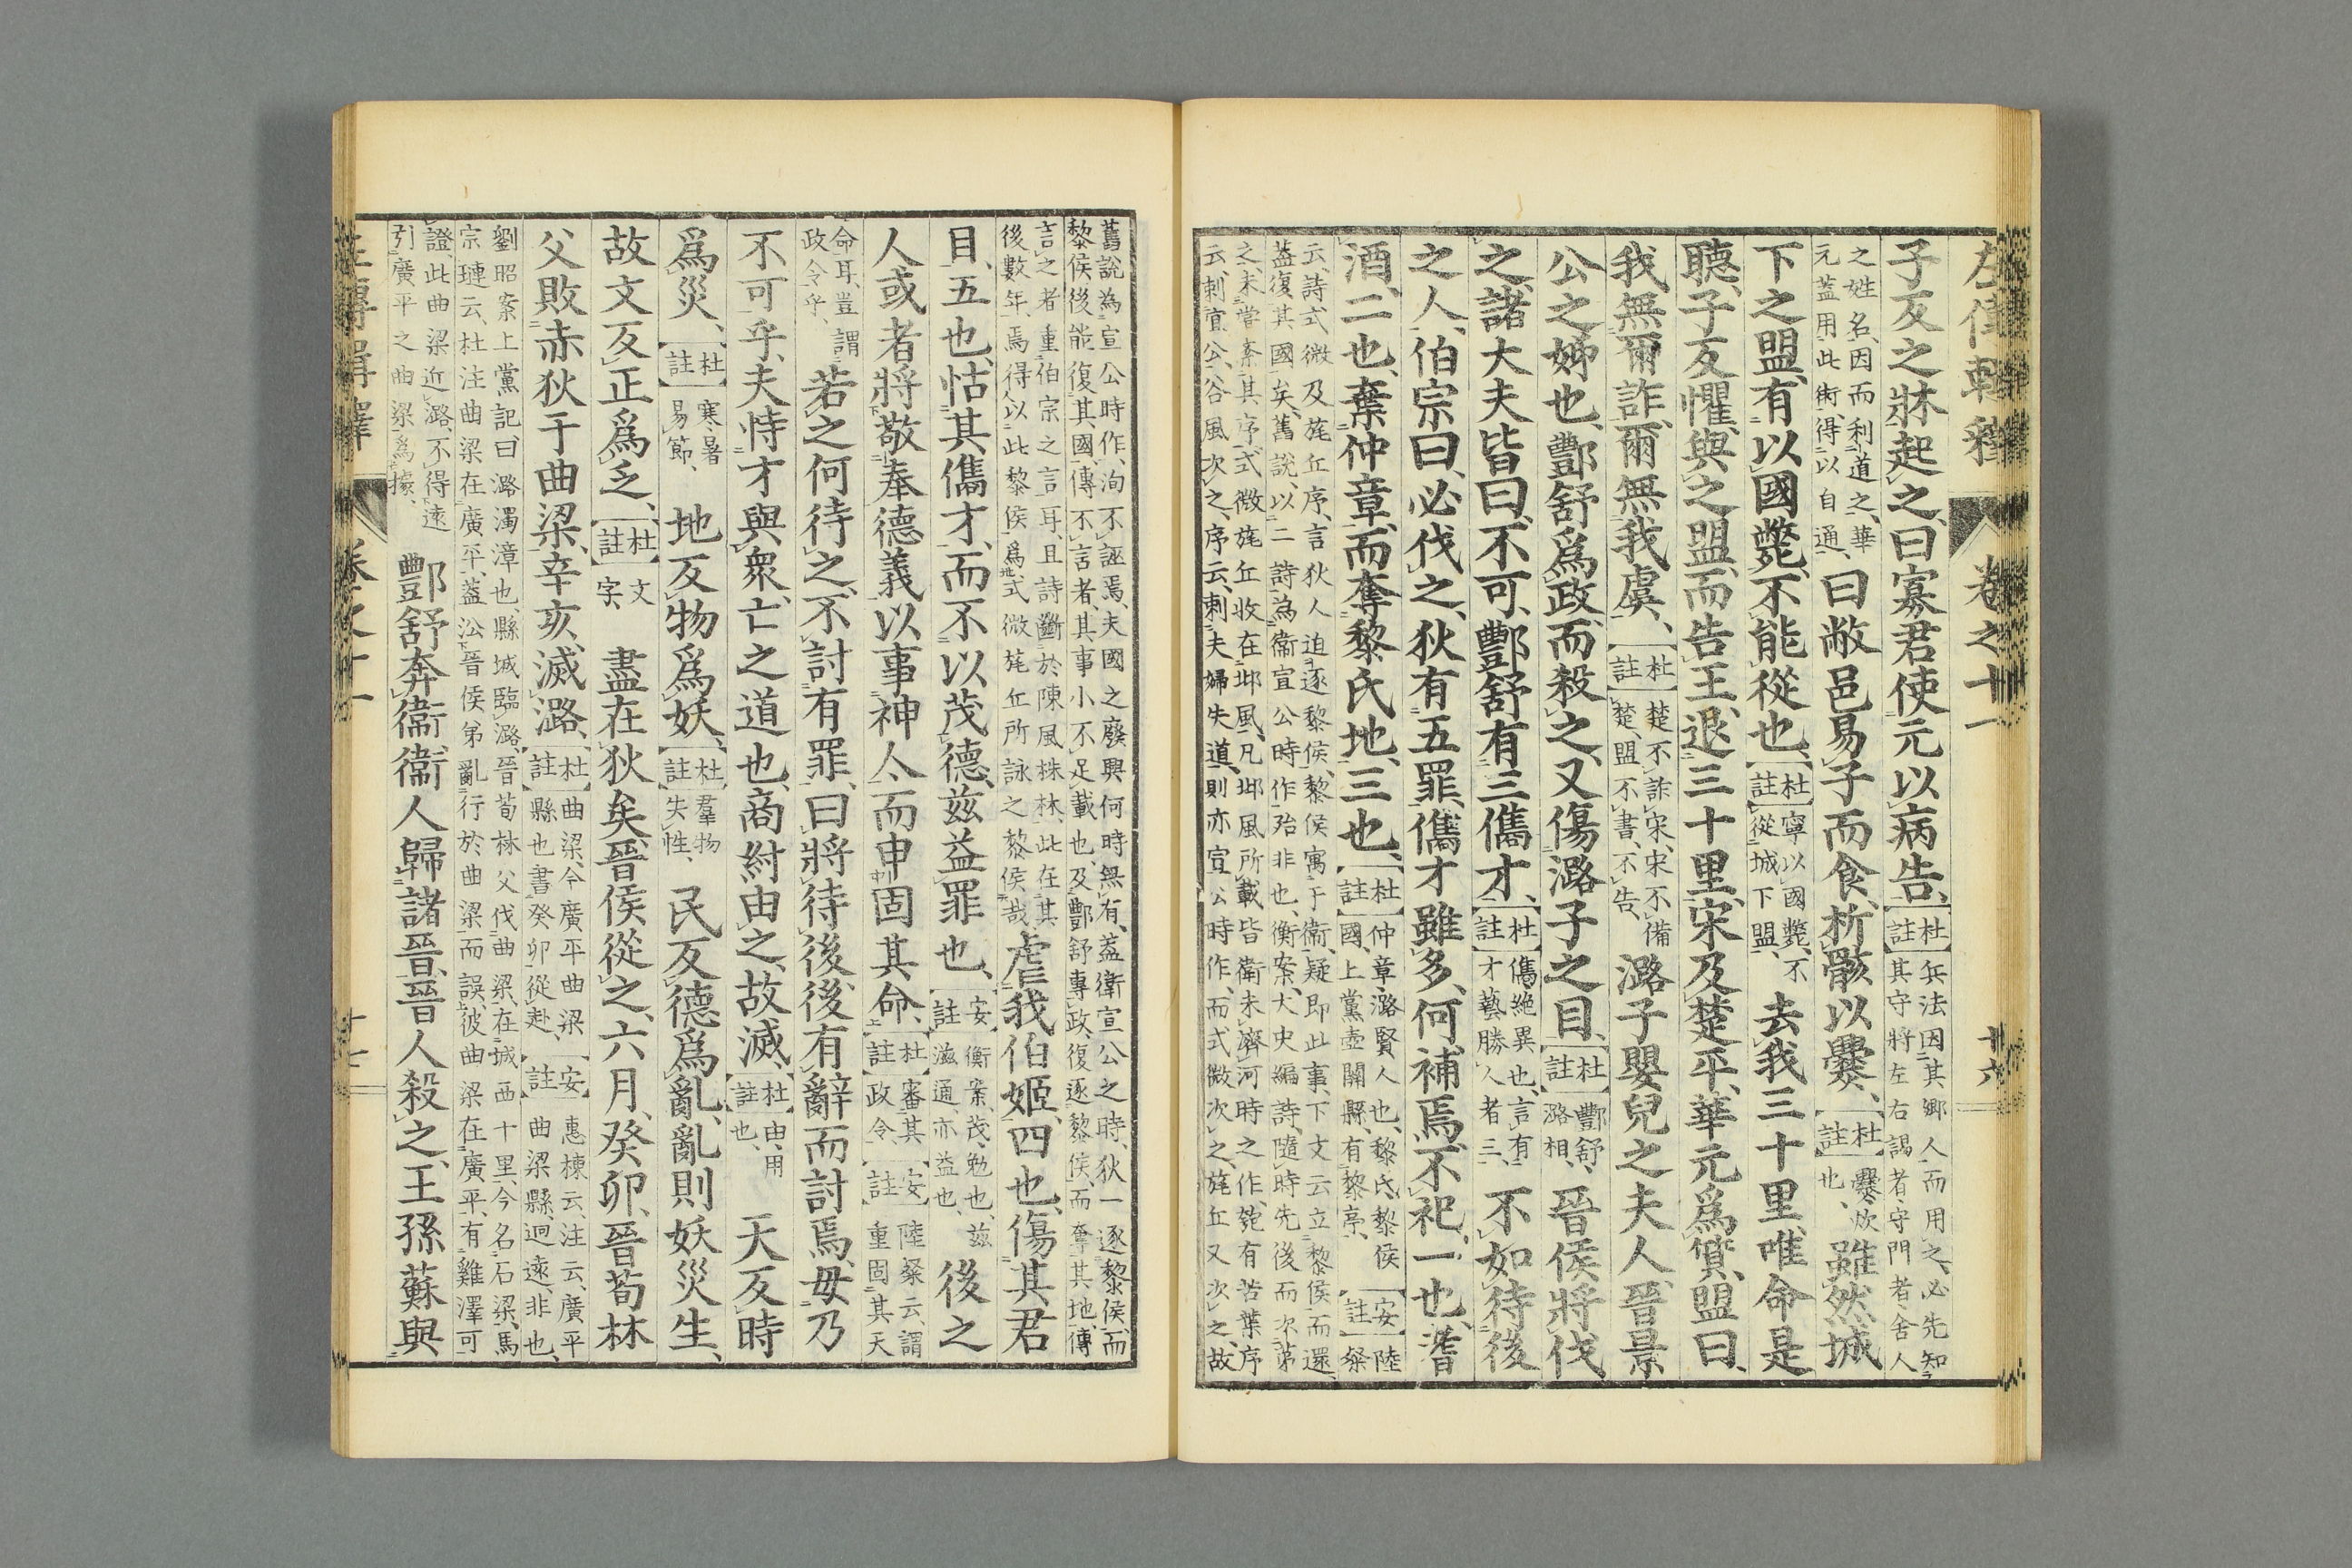 左傳輯釋 卷之十一 十六
子反之牀起之曰寡君使元以病告、【杜註】兵法因其鄉人而用之、必先知其守將左右謁者、守門者、舍人
之姓名、因而利道之、華元蓋用此術、得以自通、曰敝邑易子而食、析骸以爨、【杜註】爨炊也、雖然、城
下之盟、有以國斃、不能從也、【杜註】寧以國斃、不從城下盟、去我三十里、唯命是
聽、子反懼、與之盟、而告王、退三十里、宋及楚平、華元爲質、盟曰、
我無爾詐、爾無我虞、【杜註】楚不詐宋、宋不備楚、盟不書、不告、潞子嬰兒之夫人、晉景
公之姊也、酆舒爲政、而殺之、又傷潞子之目、【杜註】酆舒、潞相、晉侯將伐
之、諸大夫皆曰、不可、酆舒有三儁才、【杜註】儁絶異也、言有才藝勝人者三、不如待後
之人、伯宗曰、必伐之、狄有五罪、儁才雖多、何補焉、不祀、一也、耆
酒、二也、棄仲章、而奪黎氏地、三也、【杜註】仲章、潞賢人也、黎氏、黎侯國、上黨壺關縣、有黎亭、【安註】陸粲
云、詩式微及旄丘序、言狄人迫逐黎侯、黎侯寓于衞、疑卽此事、下文云立黎侯而還、
蓋復其國矣、舊說、以二詩爲衞宣公時作、殆非也、衡案、大史編詩、隨時先後而次第
之、未嘗紊其序、式微旄丘收在邶風、凡邶風所載、皆衛未濟河時之作、匏有苦葉序
云、刺宣公、谷風次之、序云、刺夫婦失道、則亦宣公時作、而式微次之、旄丘又次之、故
舊說為宣公時作、洵不誣焉、夫國之廢興何時無有、蓋衛宣公之時、狄一逐黎侯、而
黎侯後能復其國、傳不言者、其事小不足載也、及酆舒專政、復逐黎侯、而奪其地、傳
言之者重伯宗之言耳、且詩斷於陳風株林、此在其後數年、焉得以此黎侯爲式微旄丘所詠之黎侯哉、虐我伯姬、四也、傷其君
目、五也、怙其儁才、而不以茂德、茲益罪也、【安註】衡案、茂、勉也、茲滋通、亦益也、後之
人或者將敬奉德義、以事神人、而申固其命、【杜註】審其政令、【安註】陸粲云、謂重固其天
命耳、豈謂政令乎、若之何待之、不討有罪、曰將待後、後有辭而討焉、毋乃
不可乎、夫恃才與衆、亡之道也、商紂由之、故滅、【杜註】由、用也、天反時
爲災、【杜註】寒暑易節、地反物爲妖、【杜註】羣物失性、民反德爲亂、亂則妖災生、
故文反正爲乏、【杜註】文字、盡在狄矣、晉侯從之、六月、癸卯、晉荀林
父敗赤狄于曲梁、辛亥、滅潞、【杜註】曲梁、今廣平曲梁縣也、書癸卯、從赴、【安註】惠棟云、注云、廣平曲梁縣、迥遠、非也、
劉昭案上黨記曰潞濁漳也、縣城臨潞、晉荀林父伐曲梁、在城西十里、今名石梁、馬
宗璉云、杜注曲梁在廣平、蓋㳂晉侯弟亂行於曲梁而誤、彼曲梁在廣平、有雞澤可
證、此曲梁近潞、不得遠引廣平之曲梁爲據、酆舒奔衞、衞人歸諸晉、晉人殺之、王孫蘇與
左傳輯釋 卷之十一 十七